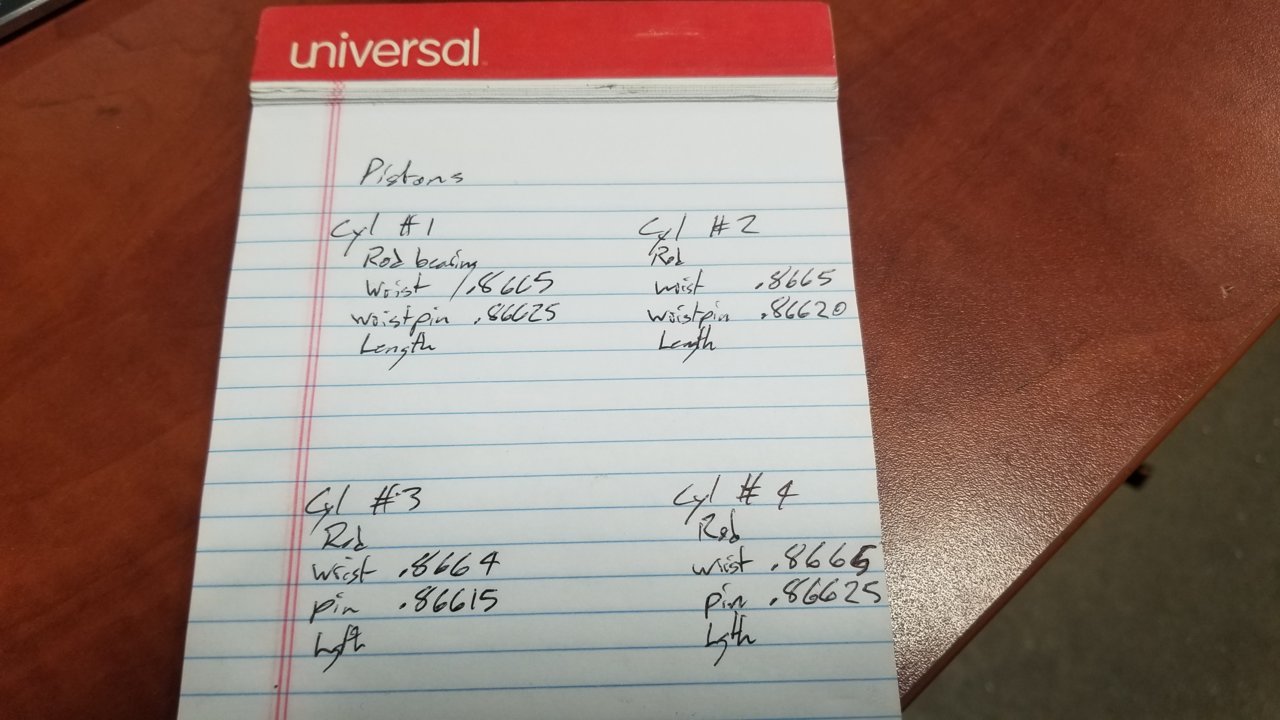 universal
Pistons
Cyl #1
Rod bearing
Wrist .8665
wristpin .86625
Length
Cyl #2
Rod
wrist .8665
wristpin .86620
Length
Cyl #3
Rod
wrist .8664
pin .86615
Lgth
Cyl #4
Rod
wrist .8665
pin .86625
Lgth